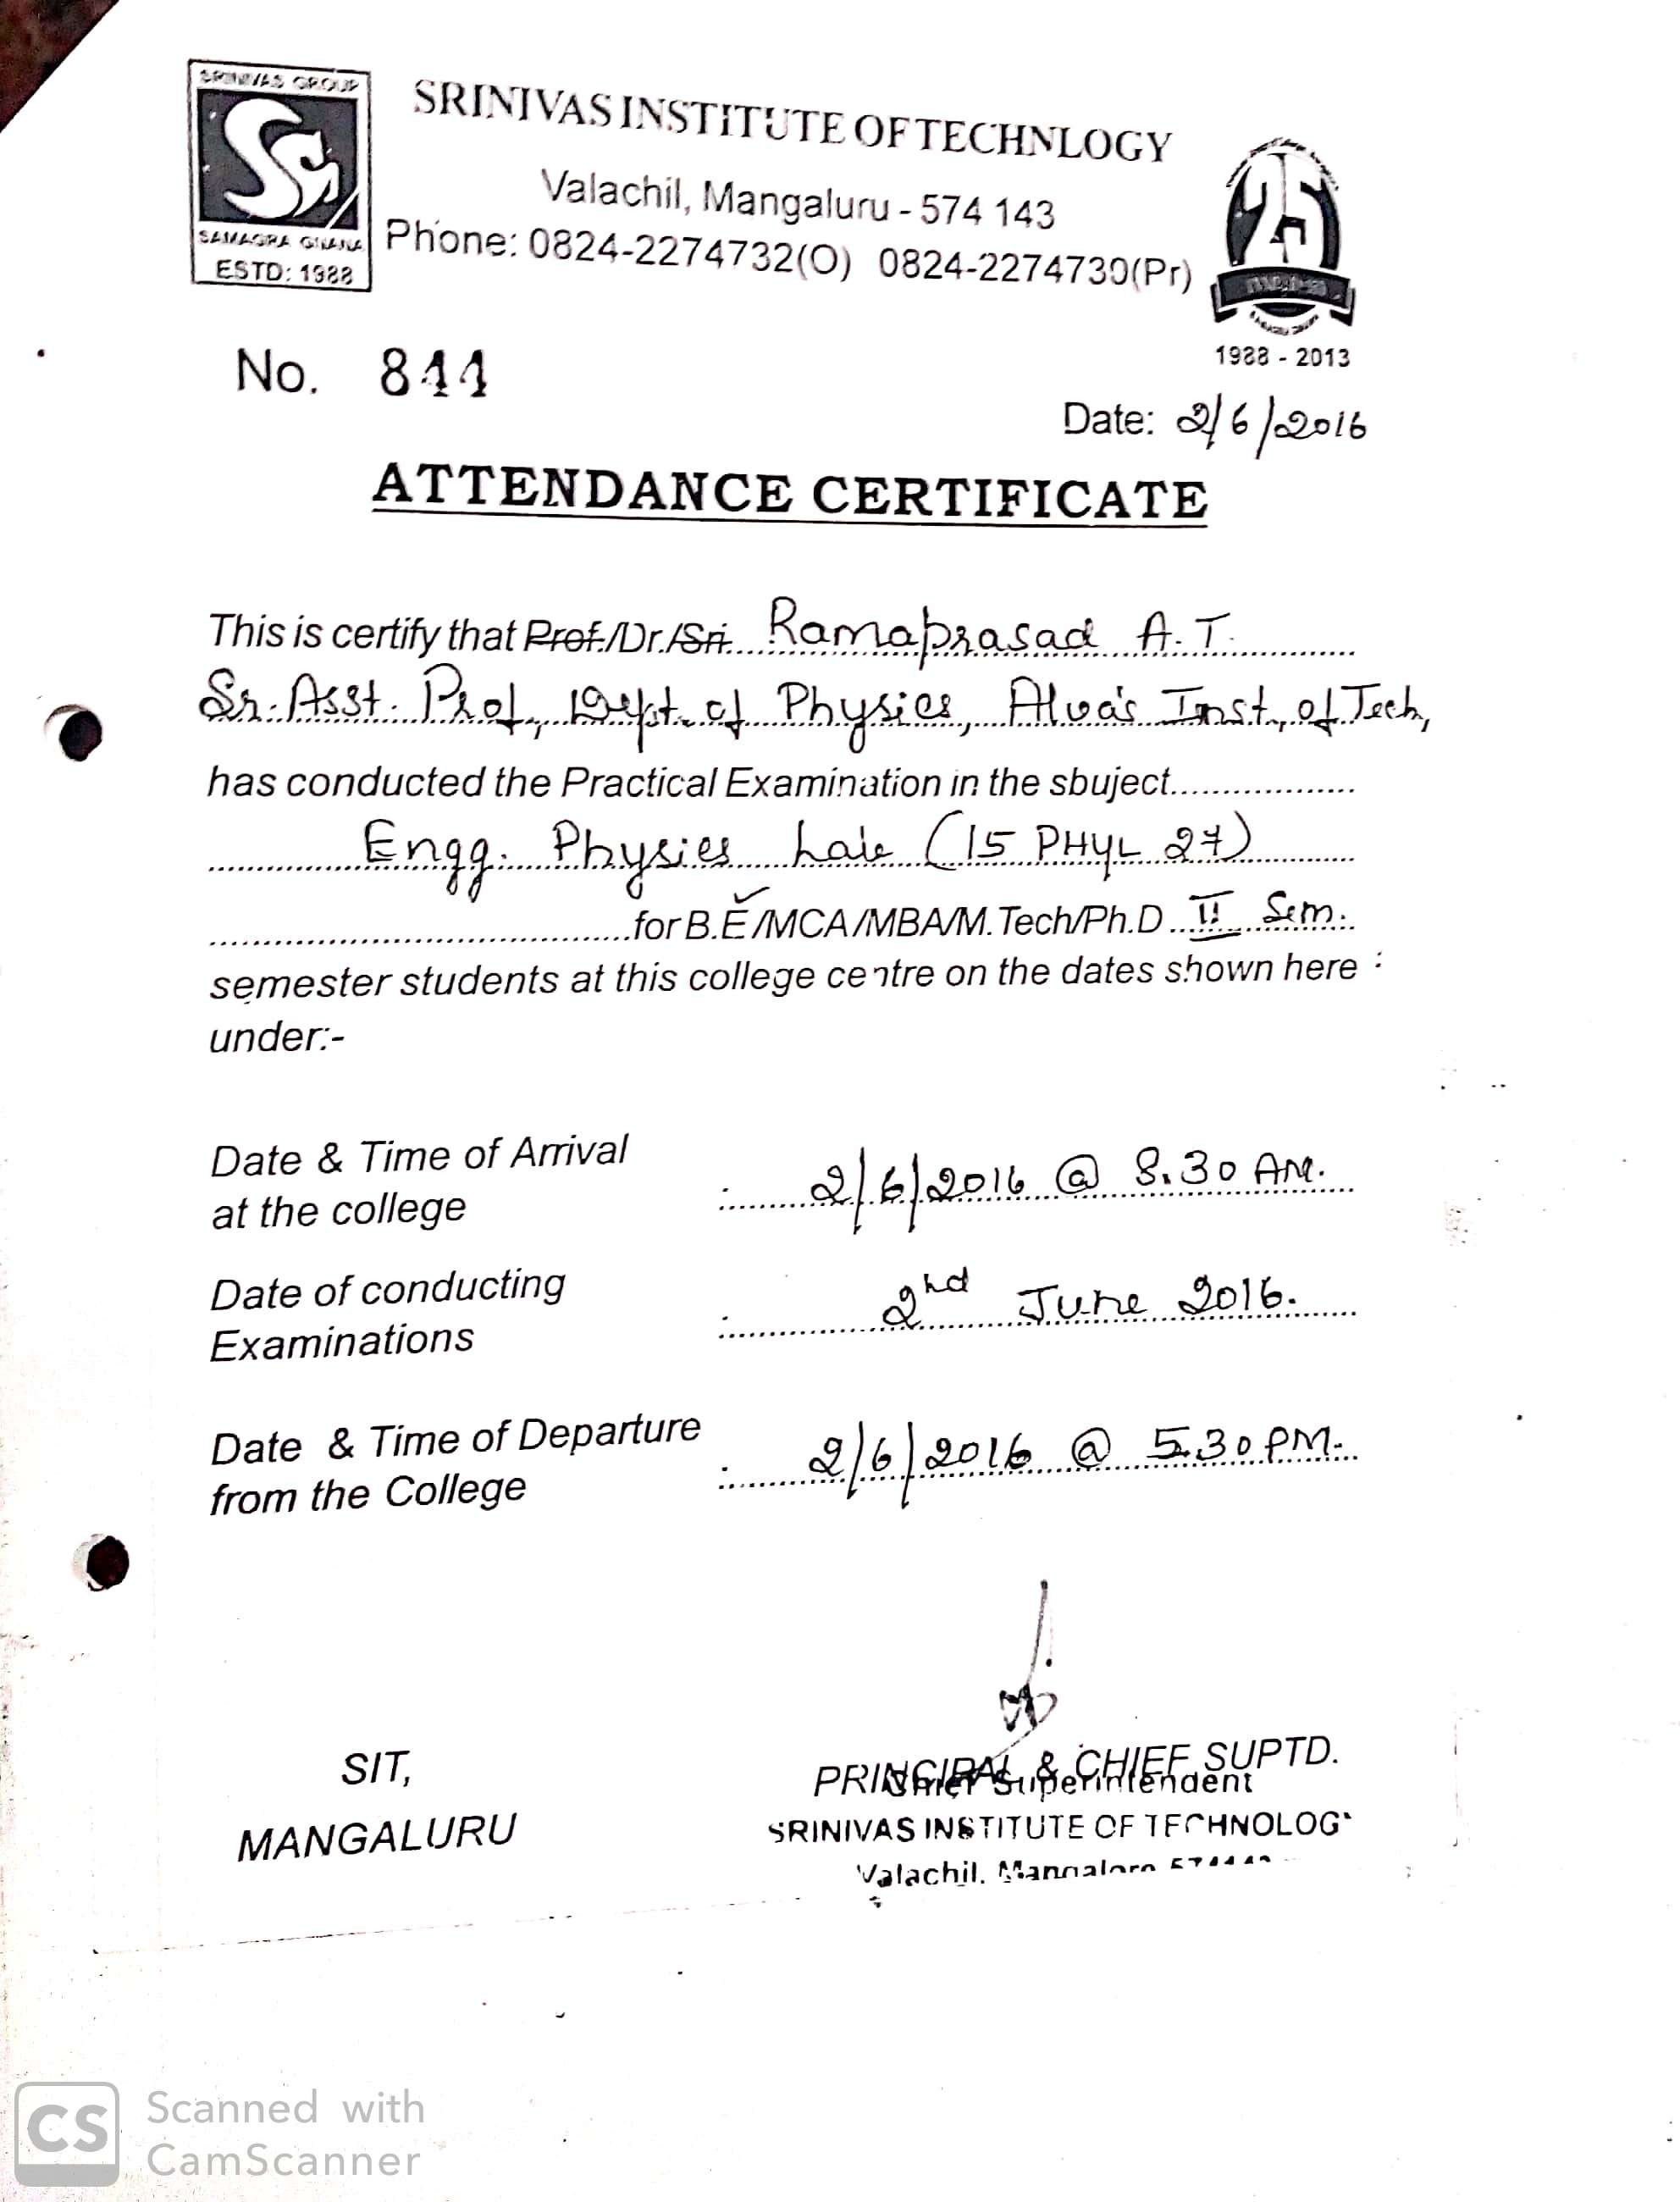 SRINIVAS GROUP
SAMAGRA GNANA
ESTD: 1988
SRINIVAS INSTITUTE OF TECHNLOGY
Valachil, Mangaluru - 574 143
Phone: 0824-2274732(O) 0824-2274730(Pr)
25
1988 - 2013
No. 844
Date: 2/6/2016
ATTENDANCE CERTIFICATE
This is certify that Prof./Dr./Sri. Ramaprasad A.T.
Sr. Asst. Prof, Dept. of Physics, Alva's Inst, of Tech,
has conducted the Practical Examination in the sbuject
Engg. Physics Lab (15 PHYL 27)
for B.E/MCA/MBA/M.Tech/Ph.D II Sem.
semester students at this college centre on the dates shown here :
under:-
Date & Time of Arrival
at the college : 2/6/2016 @ 8.30 AM.
Date of conducting
Examinations : 2nd June 2016.
Date & Time of Departure
from the College : 2/6/2016 @ 5.30 PM.
SIT,
MANGALURU
PRINCIPAL & CHIEF SUPTD.
Chief Superintendent
SRINIVAS INSTITUTE OF TECHNOLOG
Valachil, Mangalore
CS
Scanned with
CamScanner